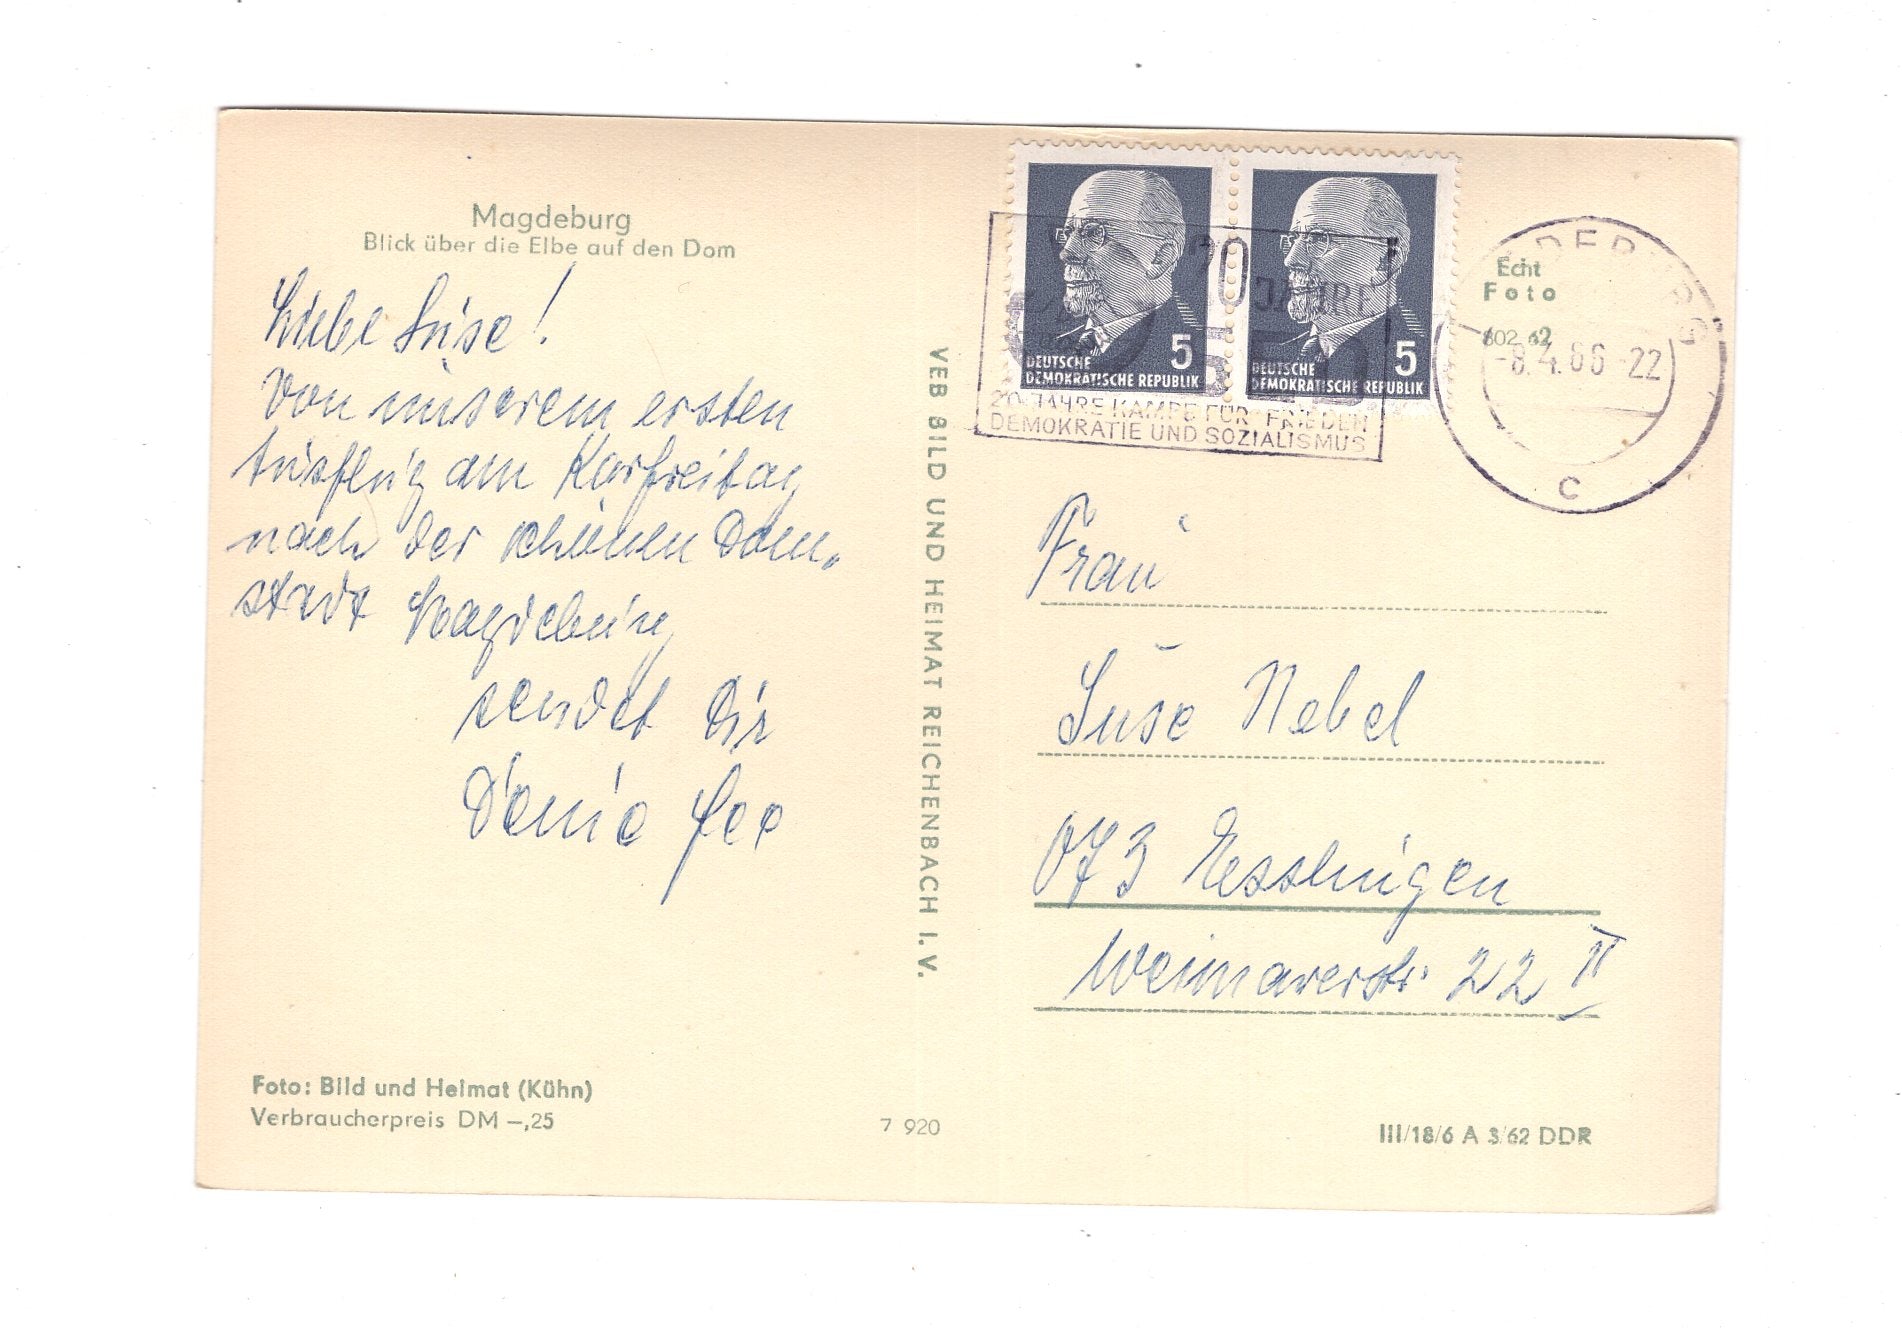 Magdeburg
Blick über die Elbe auf den Dom
Liebe Suse!
Von unserem ersten
Ausflug am Karfreitag
nach der schönen Dom-
stadt Magdeburg
sendet Dir
Deine
VEB BILD UND HEIMAT REICHENBACH I. V.
5
DEUTSCHE
DEMOKRATISCHE REPUBLIK
5
DEUTSCHE
DEMOKRATISCHE REPUBLIK
20 JAHRE
SED
20 JAHRE KAMPF FÜR FRIEDEN
DEMOKRATIE UND SOZIALISMUS
MAGDEBURG
-8.4.66-22
C
Echt
Foto
802 62
Frau
Suse Nebel
073 Esslingen
Weimarerstr. 22 II
Foto: Bild und Heimat (Kühn)
Verbraucherpreis DM –,25
7 920
III/18/6 A 3/62 DDR